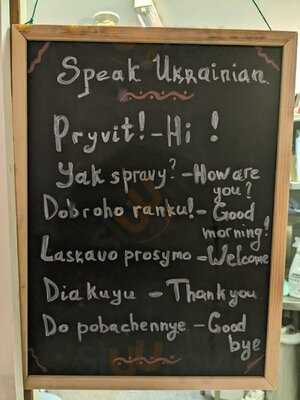 Speak Ukrainian
Pryvit! - Hi !
Yak spravy? - How are
you?
Dobroho ranku! - Good
morning!
Laskavo prosymo - Welcome
Diakuyu - Thank you
Do pobachennye - Good
bye